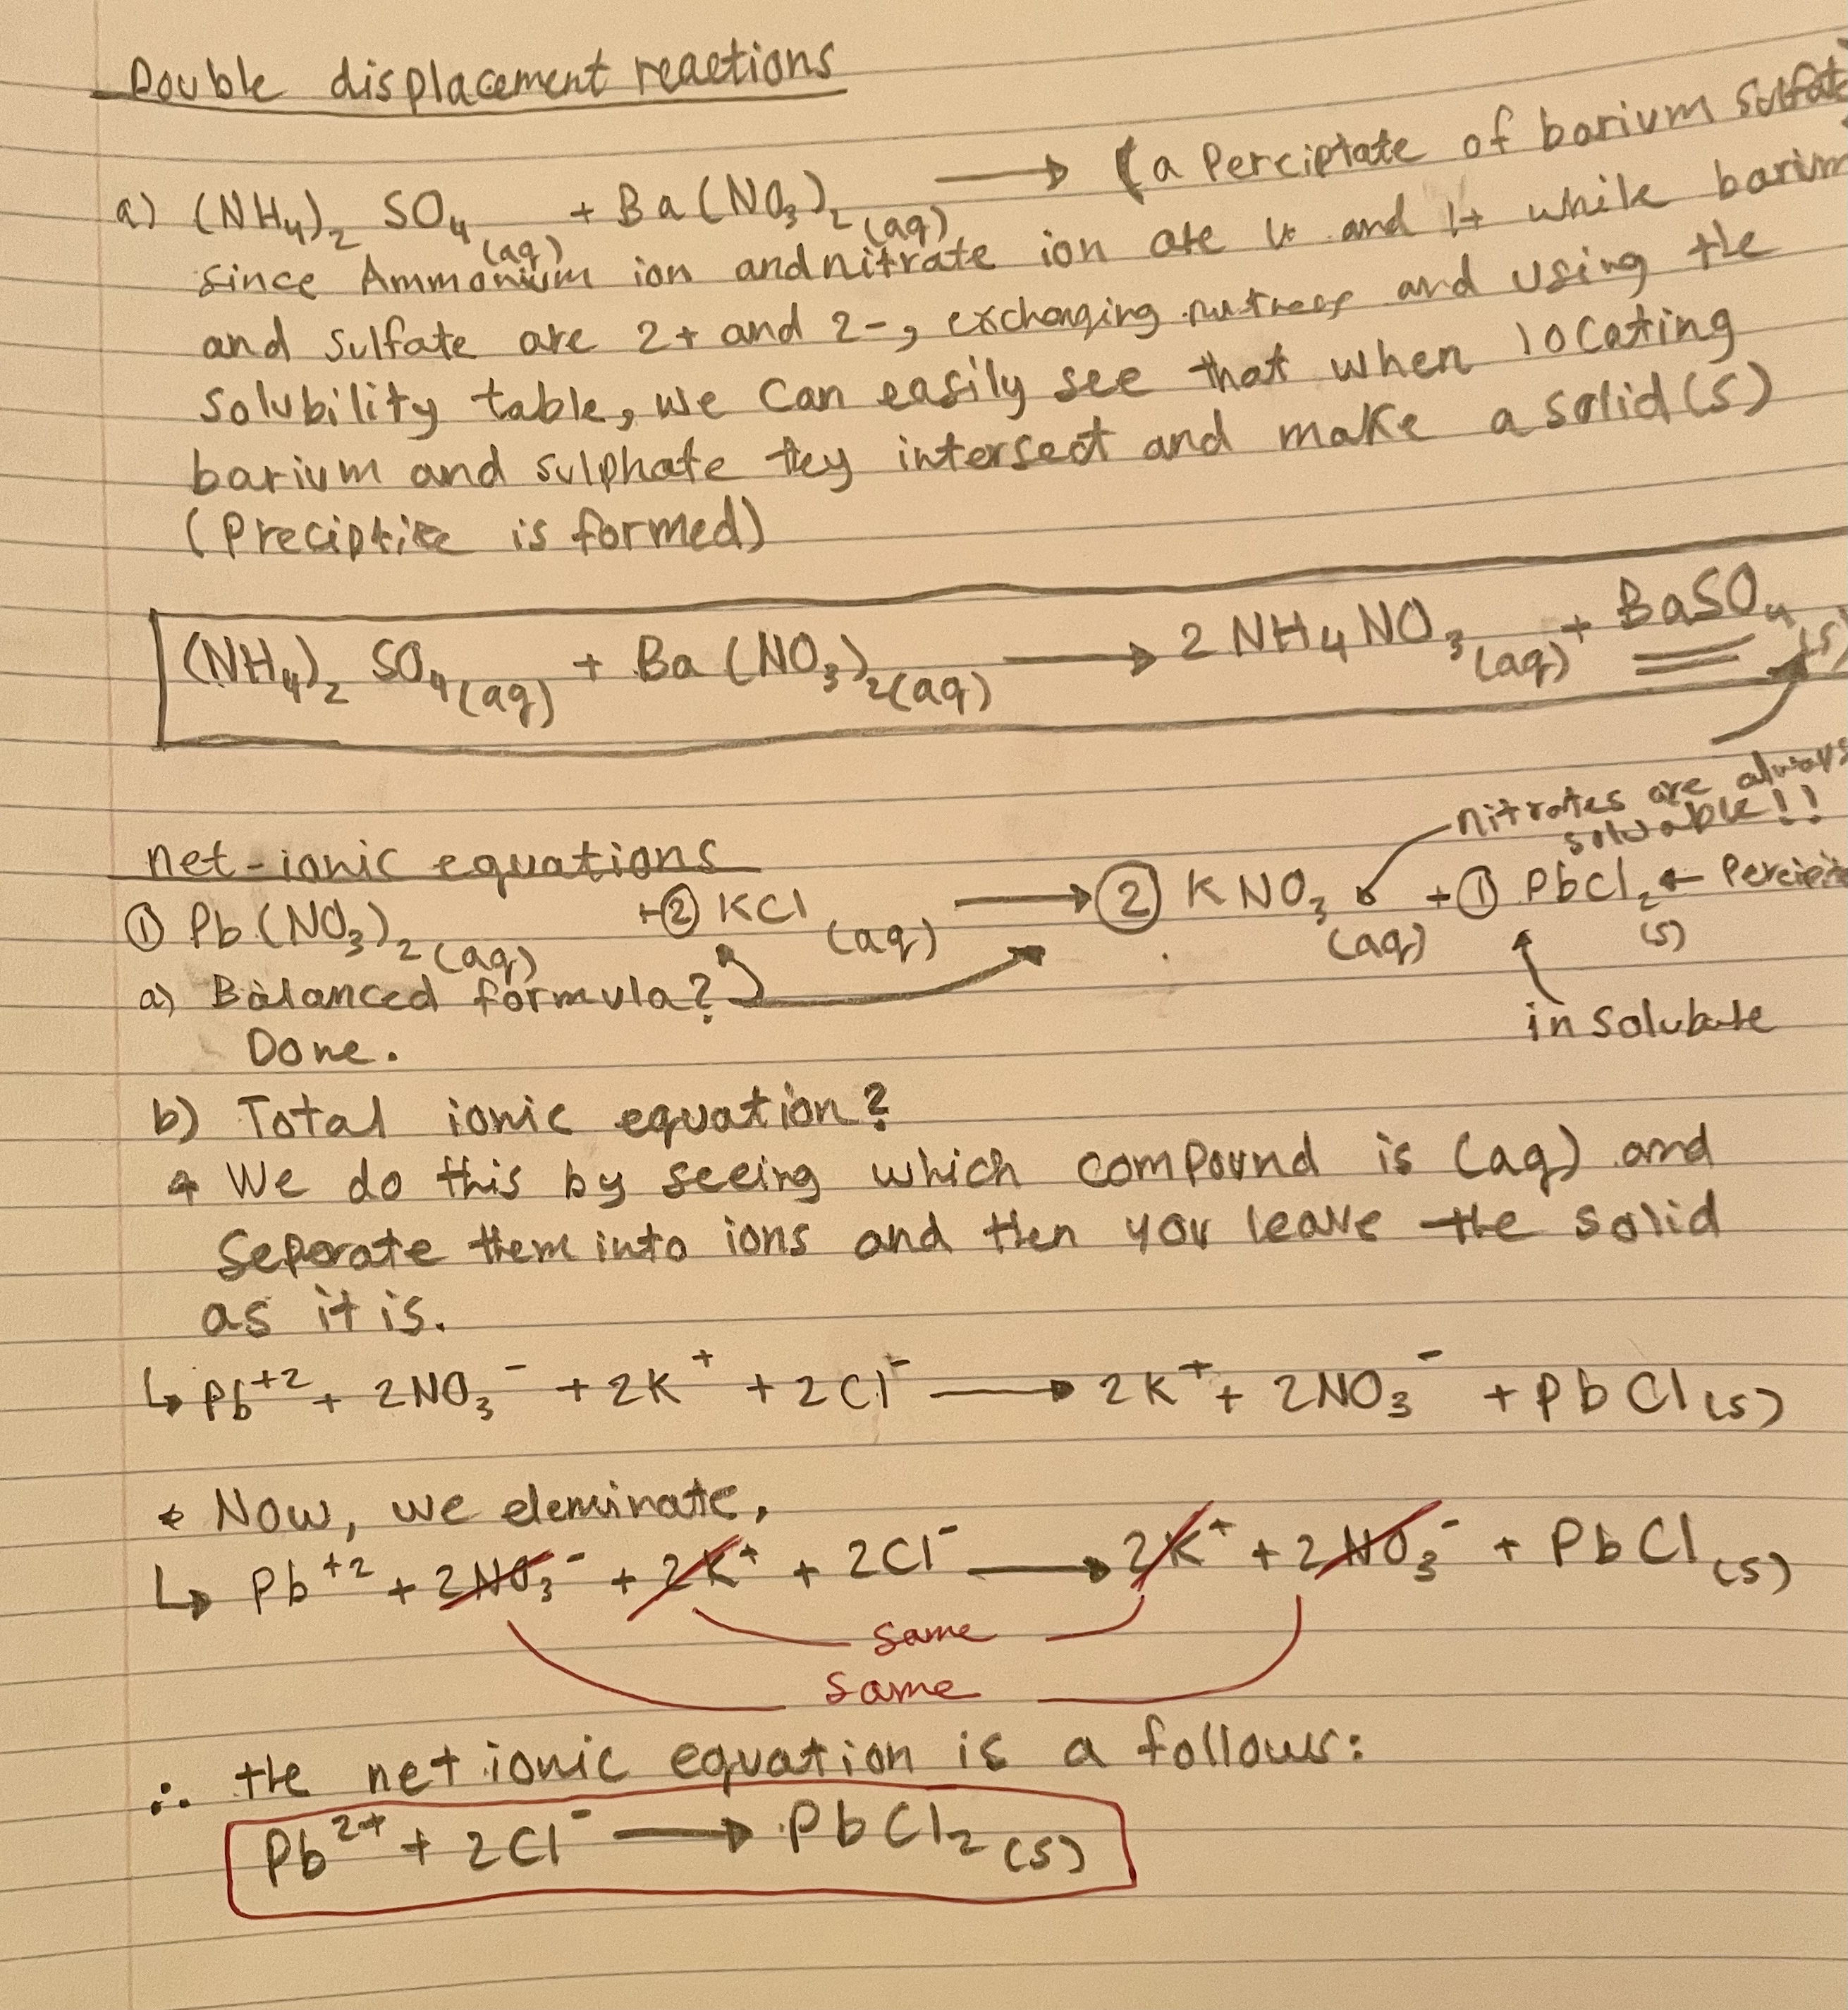 Double displacement reactions
a) (NH₄)₂ SO₄(aq) + Ba(NO₃)₂(aq) → (a Perciptate of barium sulfate)
since Ammonium ion and nitrate ion are 1+ and 1+ while barium
and sulfate are 2+ and 2-, exchanging and using the
solubility table, we can easily see that when locating
barium and sulphate they intersect and make a solid (s)
( is formed)
(NH₄)₂ SO₄(aq) + Ba(NO₃)₂(aq) → 2 NH₄NO₃(aq) + BaSO₄(s)
nitrates are always
net-ionic equations
① Pb(NO₃)₂(aq) + ② KCl(aq) → ② KNO₃(aq) + ① PbCl₂(s) ←
a) Balanced formula?
Done.
b) Total ionic equation?
We do this by seeing which compound is (aq) and
Seperate them into ions and then you leave the solid
as it is.
↳ Pb⁺² + 2NO₃⁻ + 2K⁺ + 2Cl⁻ → 2K⁺ + 2NO₃⁻ + PbCl(s)
* Now, we eleminate,
↳ Pb⁺² + 2NO₃⁻ + 2K⁺ + 2Cl⁻ → 2K⁺ + 2NO₃⁻ + PbCl(s)
same
same
∴ the net ionic equation is a follows:
Pb²⁺ + 2Cl⁻ → PbCl₂(s)